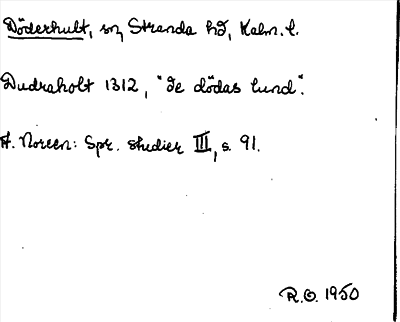 Döderhult, sn, Stranda hd, Kalm. l.
Dudraholt 1312, "de dödas lund".
A. Noreen: Spr. studier III, s. 91.
R.O. 1950